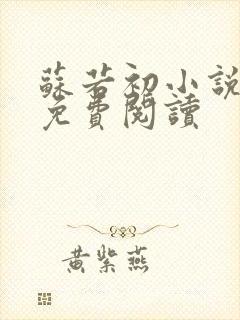 蘇若初小說
免費閱讀
黃紫燕